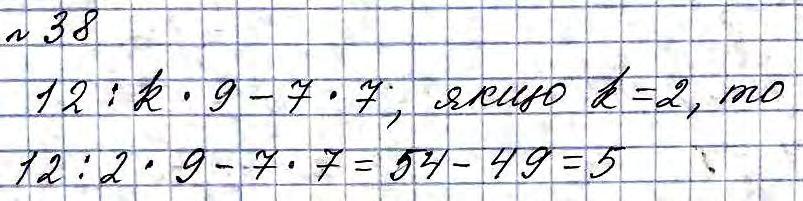 № 38
12 : k · 9 - 7 · 7, якщо k = 2, то
12 : 2 · 9 - 7 · 7 = 54 - 49 = 5